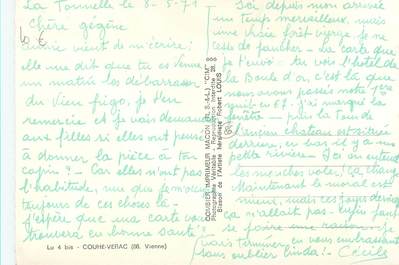 La Tonnelle le 8-5-71
Chère gégène
vient de m'écrire;
elle me dit que tu es venu
un matin les débarrasser
du vieu frigo. Je t'en
remercie et je vais demander
aux filles si elles ont pensé
à donner la pièce à ton
copin? - Car elles n'ont pas
l'habitude, vue que je m'occupe
toujours de ces choses là -
j'espère que ma carte vous
trouvera en bonne santé
10 €
Lu 4 bis - COUHE-VERAC (86. Vienne)
COMBIER IMPRIMEUR MACON (R. S.-&-L.) "CIM"
Photographie Véritable - Reproduction Interdite
Blason de l'Artiste héraldiste Robert LOUIS
Ici depuis mon arrivée
un temps merveilleux, mais
une vraie forêt vierge. Je ne
cesse de faucher - La carte que
je t'envoi : tu vois l'hôtel de
la Boule d'or, c'est là que
nous avons passés notre 1ère
nuit en 67. J'ai marqué la
fenêtre - près la Tour de
l'ancien chateau est située
derrière, en bas il y a une
petite rivière - Ici on entend
les mouches voler, ça change
Maintenant le moral est
mieux, mais ces jours derniers
ça n'allait pas - enfin faut
se faire une raison - Je
vais terminer en vous embrassant
sans oublier Linda! - Cécile